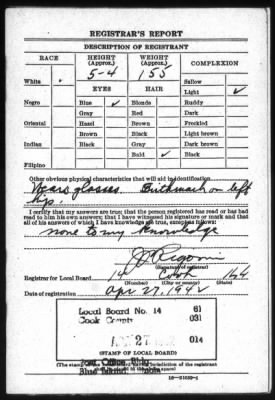 REGISTRAR'S REPORT
DESCRIPTION OF REGISTRANT
RACE
HEIGHT (Approx.)
WEIGHT (Approx.)
COMPLEXION
5-4
155
White ✓
EYES
HAIR
Sallow
Light ✓
Negro
Blue ✓
Blonde
Ruddy
Gray
Red
Dark
Oriental
Hazel
Brown
Freckled
Brown
Black
Light brown
Indian
Black
Gray
Dark brown
Bald ✓
Black
Filipino
Other obvious physical characteristics that will aid in identification
Wears glasses. Birthmark on left
hip.
I certify that my answers are true; that the person registered has read or has had
read to him his own answers; that I have witnessed his signature or mark and that
all of his answers of which I have knowledge are true, except as follows:
none to my knowledge
Rigoni
(Signature of registrar)
Registrar for Local Board 14 Cook
(Number) (City or county) (State)
Date of registration Apr 27, 1942
Local Board No. 14 61
Cook County 031
27 014
(STAMP OF LOCAL BOARD)
(The stamp of the Local Board
jurisdiction of the registrant
Post Office Bldg
Blue Island